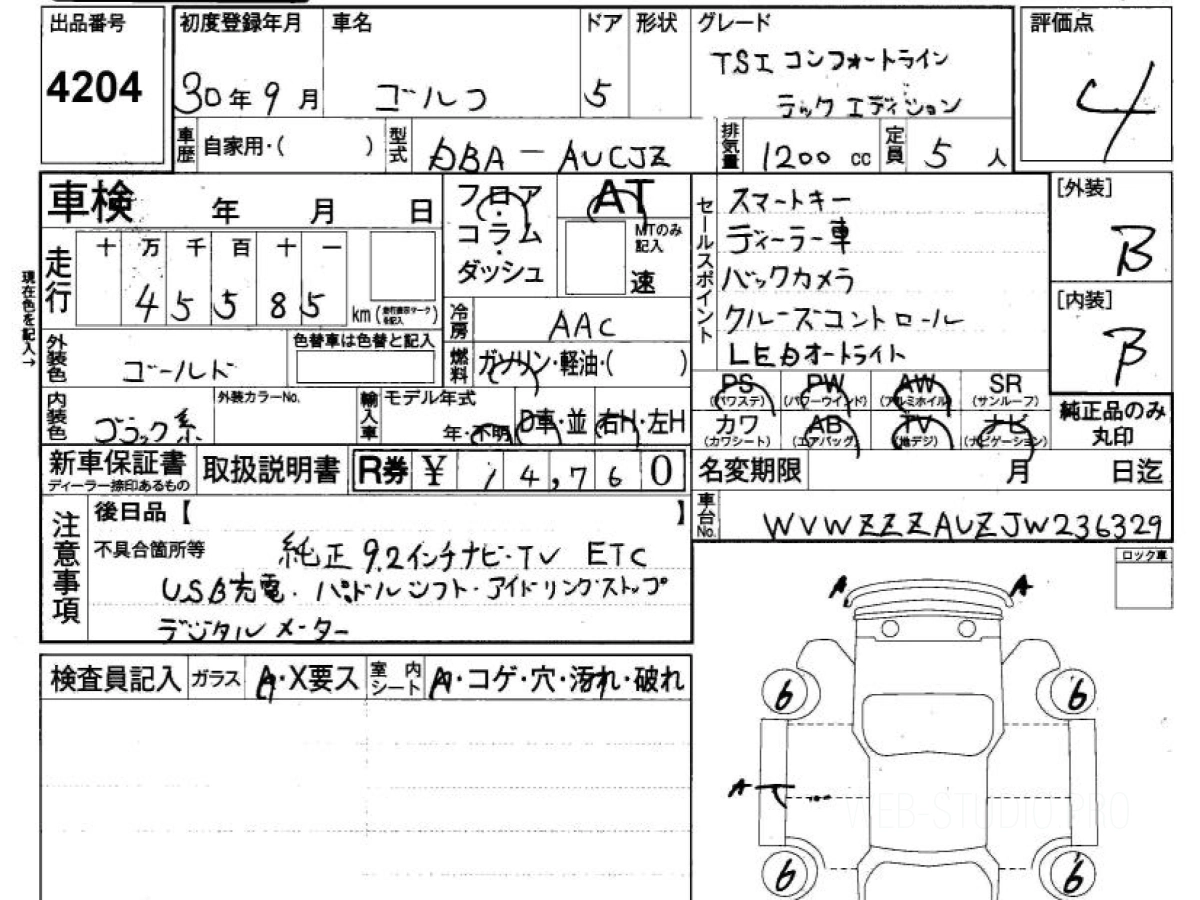 出品番号
4204
初度登録年月
30年9月
車名
ゴルフ
ドア
5
形状
グレード
TSI コンフォートライン
テック エディション
評価点
4
車歴
自家用・( )
型式
DBA - AUCJZ
排気量
1200 cc
定員
5 人
車検 年 月 日
現在色を記入→
走行
十 万 千 百 十 一
4 5 5 8 5
km (走行表示マークを記入)
フロア
コラム
ダッシュ
AT
MTのみ
記入
速
冷房
AAC
燃料
ガソリン・軽油・( )
外装色
ゴールド
色替車は色替と記入
内装色
ブラック系
外装カラーNo.
輸入車
モデル年式
年・不明
D車・並
右H・左H
セールスポイント
スマートキー
ディーラー車
バックカメラ
クルーズコントロール
LEDオートライト
PS
(パワステ)
PW
(パワーウインド)
AW
(アルミホイル)
SR
(サンルーフ)
カワ
(カワシート)
AB
(エアバッグ)
TV
(地デジ)
ナビ
(ナビゲーション)
[外装]
B
[内装]
B
純正品のみ
丸印
新車保証書
ディーラー捺印あるもの
取扱説明書
R券 ¥ 1 4,7 6 0
名変期限 月 日迄
車台No.
WVWZZZAUZJW236329
注意事項
後日品【 】
不具合箇所等
純正 9.2インチナビ・TV ETC
USB充電・パドルシフト・アイドリングストップ
デジタルメーター
検査員記入
ガラス
A・X要ス
室内
シート
A・コゲ・穴・汚れ・破れ
ロック車
A
A
6
6
A
6
6
WEB-STUDIO PRO